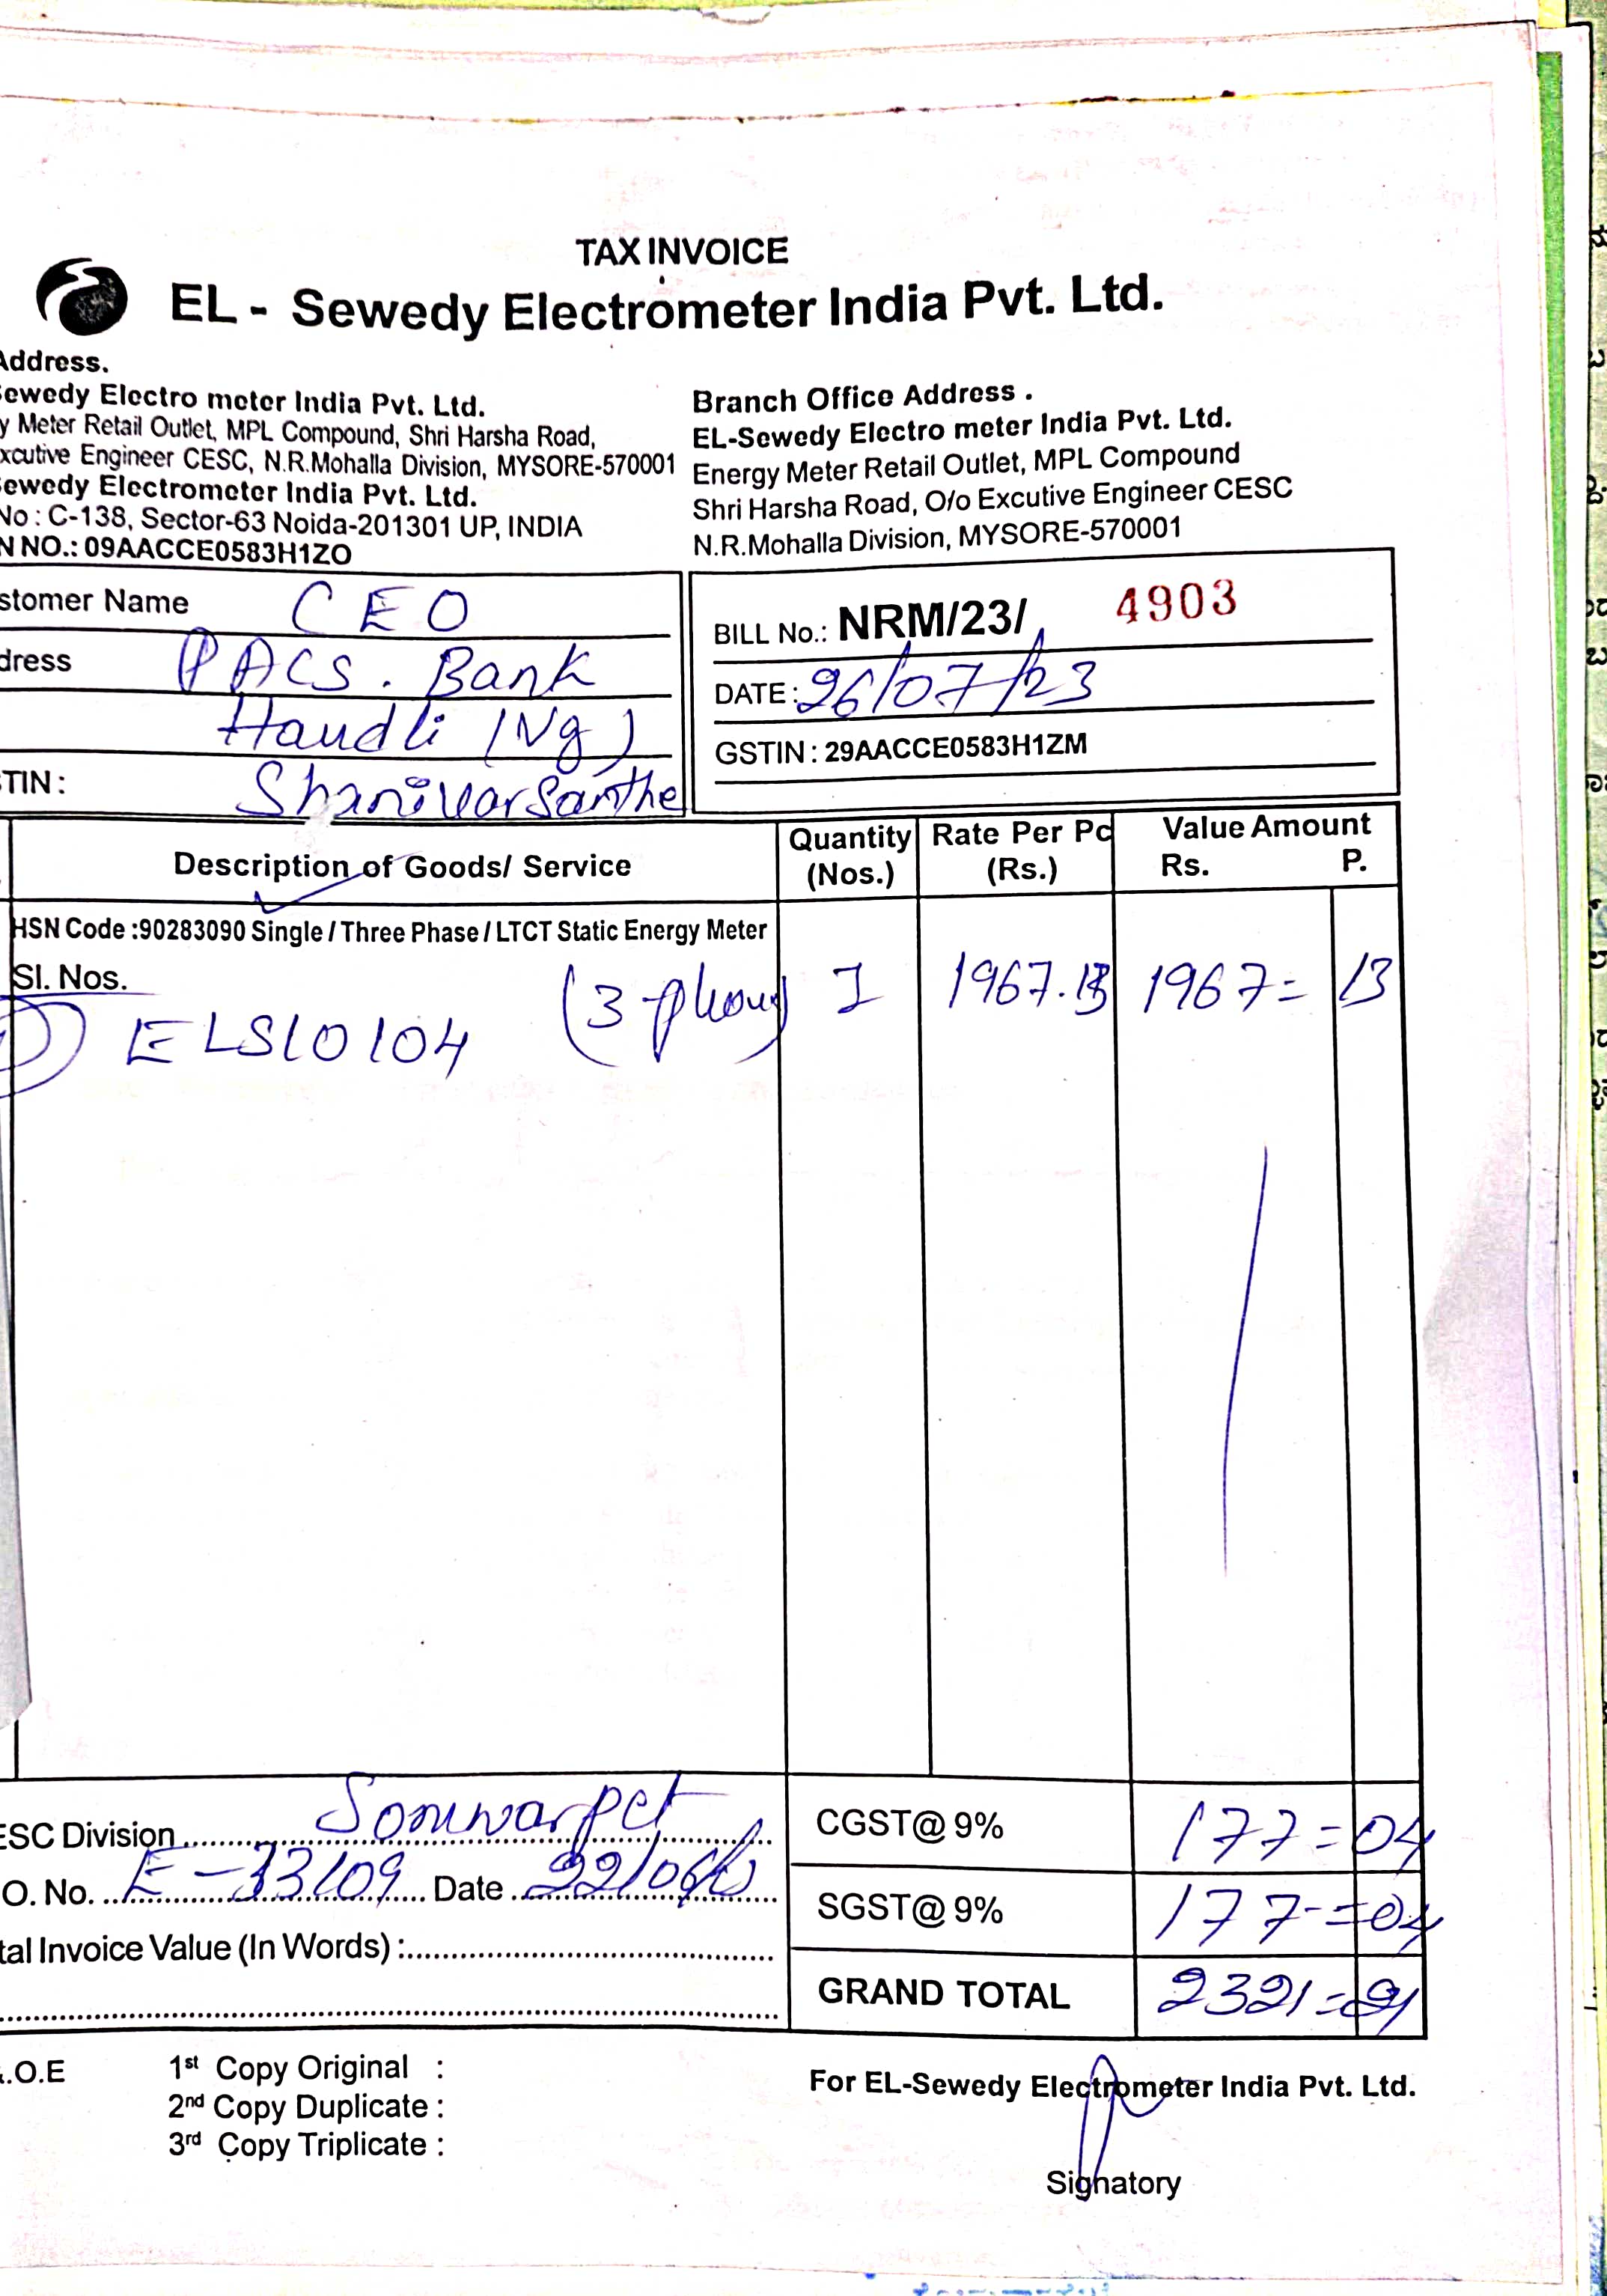 TAX INVOICE
EL - Sewedy Electrometer India Pvt. Ltd.
Address.
ewedy Electro meter India Pvt. Ltd.
y Meter Retail Outlet, MPL Compound, Shri Harsha Road,
xcutive Engineer CESC, N.R.Mohalla Division, MYSORE-570001
ewedy Electrometer India Pvt. Ltd.
No : C-138, Sector-63 Noida-201301 UP, INDIA
N NO.: 09AACCE0583H1ZO
Branch Office Address .
EL-Sewedy Electro meter India Pvt. Ltd.
Energy Meter Retail Outlet, MPL Compound
Shri Harsha Road, O/o Excutive Engineer CESC
N.R.Mohalla Division, MYSORE-570001
stomer Name CEO
dress PACS. Bank
Handli (Vg)
TIN : Shanivarsanthe
BILL No.: NRM/23/ 4903
DATE : 26/07/23
GSTIN : 29AACCE0583H1ZM
Description of Goods/ Service Quantity (Nos.) Rate Per Pc (Rs.) Value Amount Rs. P.
HSN Code :90283090 Single / Three Phase / LTCT Static Energy Meter
Sl. Nos.
ELS10104 (3 phase) 1 1967.13 1967= 13
ESC Division Somwarpet
O. No. E-33109 Date 22/06/
tal Invoice Value (In Words) :
CGST@ 9% 177=04
SGST@ 9% 177=04
GRAND TOTAL 2321=21
.O.E
1st Copy Original :
2nd Copy Duplicate :
3rd Copy Triplicate :
For EL-Sewedy Electrometer India Pvt. Ltd.
Signatory